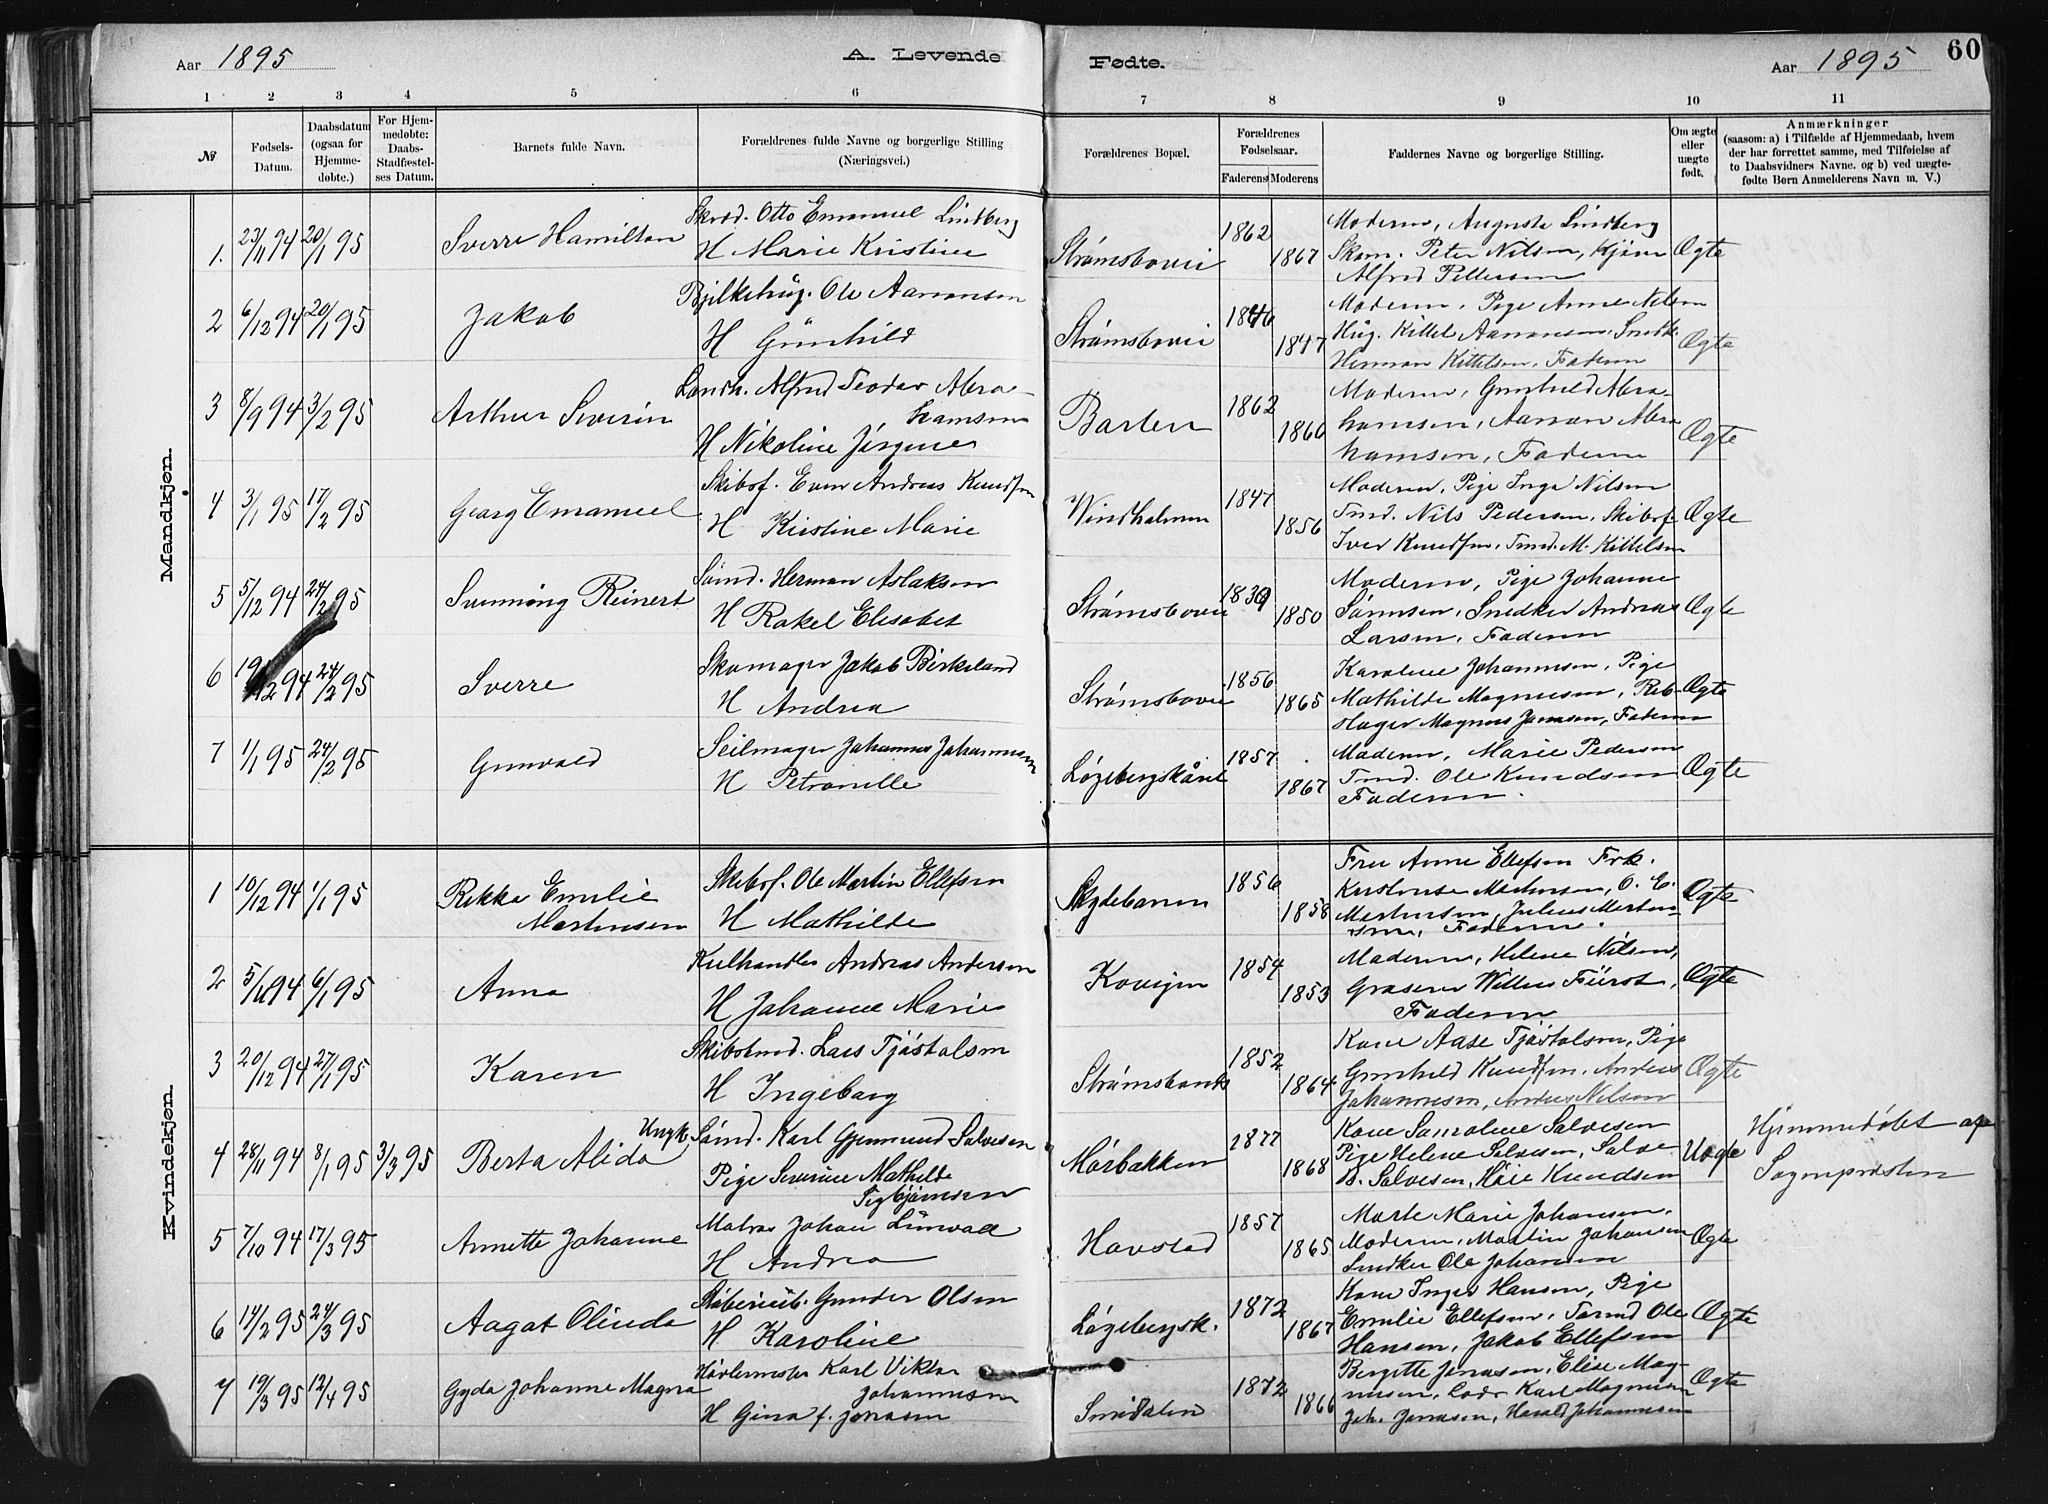 Aar 1895
A. Levende Fødte.
Aar 1895
60
1 2 3 4 5 6 7 8 9 10 11
№
Fødsels-Datum.
Daabsdatum (ogsaa for Hjemme-døbte.)
For Hjem-medøbte: Daabs-Stadfæstel-ses Datum.
Barnets fulde Navn.
Forældrenes fulde Navne og borgerlige Stilling (Næringsvei.)
Forældrenes Bopæl.
Forældrenes Fødselsaar.
Faderens Moderens
Faddernes Navne og borgerlige Stilling.
Om ægte eller uægte født.
Anmærkninger
(saasom: a) i Tilfælde af Hjemmedaab, hvem
der har forrettet samme, med Tilføielse af
to Daabsvidners Navne. og b) ved uægte-
fødte Børn Anmelderens Navn m. V.)
Mandkjøn.
1. 23/11 94 20/1 95 Sverre Hamilton
Skræd. Otto Emanuel Lindberg
H Marie Kristine
Strømsbovei 1862 1867
Moderen, Augusta Lindberg
Skom. Peter Nilsen, Kjøbm
Alfred Pettersen
Ægte
2 6/12 94 20/1 95 Jakob
Bjelkehug. Ole Aanonsen
H Gunhild
Strømsbovei 1846 1847
Moderen, Pige Anne Nilsen
Hug. Kittel Aanonsen, Snedk.
Herman Kittelsen, Faderen
Ægte
3 8/9 94 3/2 95 Arthur Severin
Landh. Alfred Teodor Abra-
hamsen
H Nikoline Jørgine
Barlen 1862 1866
Moderen, Gunhild Abra-
hamsen, Aanon Abra
hamsen, Faderen
Ægte
4 3/1 95 17/2 95 Georg Emanuel
Skibsf. Even Andreas Knudsen
H Kristine Marie
Windholmen 1847 1856
Moderen, Pige Inga Nilsen
Tmd. Nils Pedersen, Skibsf.
Iver Knudsen, Tmd. M. Kittelsen
Ægte
5 5/12 94 24/2 95 Svenning Reinert
Sømd. Herman Aslaksen
H Rakel Elisabet
Strømsbovei 1839 1850
Moderen, Pige Johanne
Sørensen, Snedker Andreas
Larsen, Faderen
Ægte
6 19/12 94 24/2 95 Sverre
Skomager Jakob Birkeland
H Andrea
Strømsbovei 1856 1865
Karoline Johannesen, Pige
Mathilde Magnusen, Reb-
slager Magnus Jensen, Faderen
Ægte
7 1/1 95 24/2 95 Gunvald
Seilmager Johannes Johannesen
H Petronille
Løgebergskåret 1857 1867
Moderen, Marie Pedersen
Tmd. Ole Knudsen
Faderen.
Ægte
Kvindekjøn.
1 10/12 94 1/1 95 Rikka Emilie
Martensen
Skibsf. Ole Martin Ellefsen
H Mathilde
Skytebanen 1856 1858
Fru Anne Ellefsen Frk.
Kristense Martensen, O. E.
Martensen, Julius Morten-
sen, Faderen.
Ægte
2 5/11 94 6/1 95 Anna
Kulhandler Andreas Andersen
H Johanne Marie
Kovigen 1854 1853
Moderen, Helene Nilsen,
Graserer Willum Fürst,
Faderen
Ægte
3 20/12 94 27/1 95 Karen
Skibstmd. Lars Tjøstolsen
H Ingeborg
Strømsbo 1852 1864
Kone Aase Tjøstolsen, Pige
Gunhild Knudsen, Anders
Johannesen, Anders Nilsen
Ægte
4 28/11 94 8/1 95 3/3 95 Berta Alida
Ungk. Sømd. Karl Gjermund Salvesen
Pige Severine Mathilde
Sigbjørnsen
Mørbakken 1877 1868
Kone Samoline Salvesen
Pige Helene Salvesen, Salve
B. Salvesen, Knudsen
Uægte
Hjemmedøbt af
Sognepresten
5 7/10 94 17/3 95 Annette Johanne
Matros Johan Lünvall
H Andrea
Havstad 1857 1865
Marte Marie Johansen,
Moderen, Martin Johansen
Snedker Ole Johansen
Ægte
6 14/2 95 24/3 95 Aagot Olinda
Støberiarb. Gunder Olsen
H Karoline
Løgebergsk. 1872 1867
Kone Inger Hansen, Pige
Emilie Ellefsen, Tømd Ole
Hansen, Jakob Ellefsen
Ægte
7 19/3 95 12/4 95 Gyda Johanne Magna
Karl Viktor
Johannesen
H Gina f. Jonasen
Smedalen 1872 1866
Bergitte Jonasen, Elise Mag-
nusen, Lods Karl Magnusen
Joh. Jonasen, Harald Johannesen
Ægte